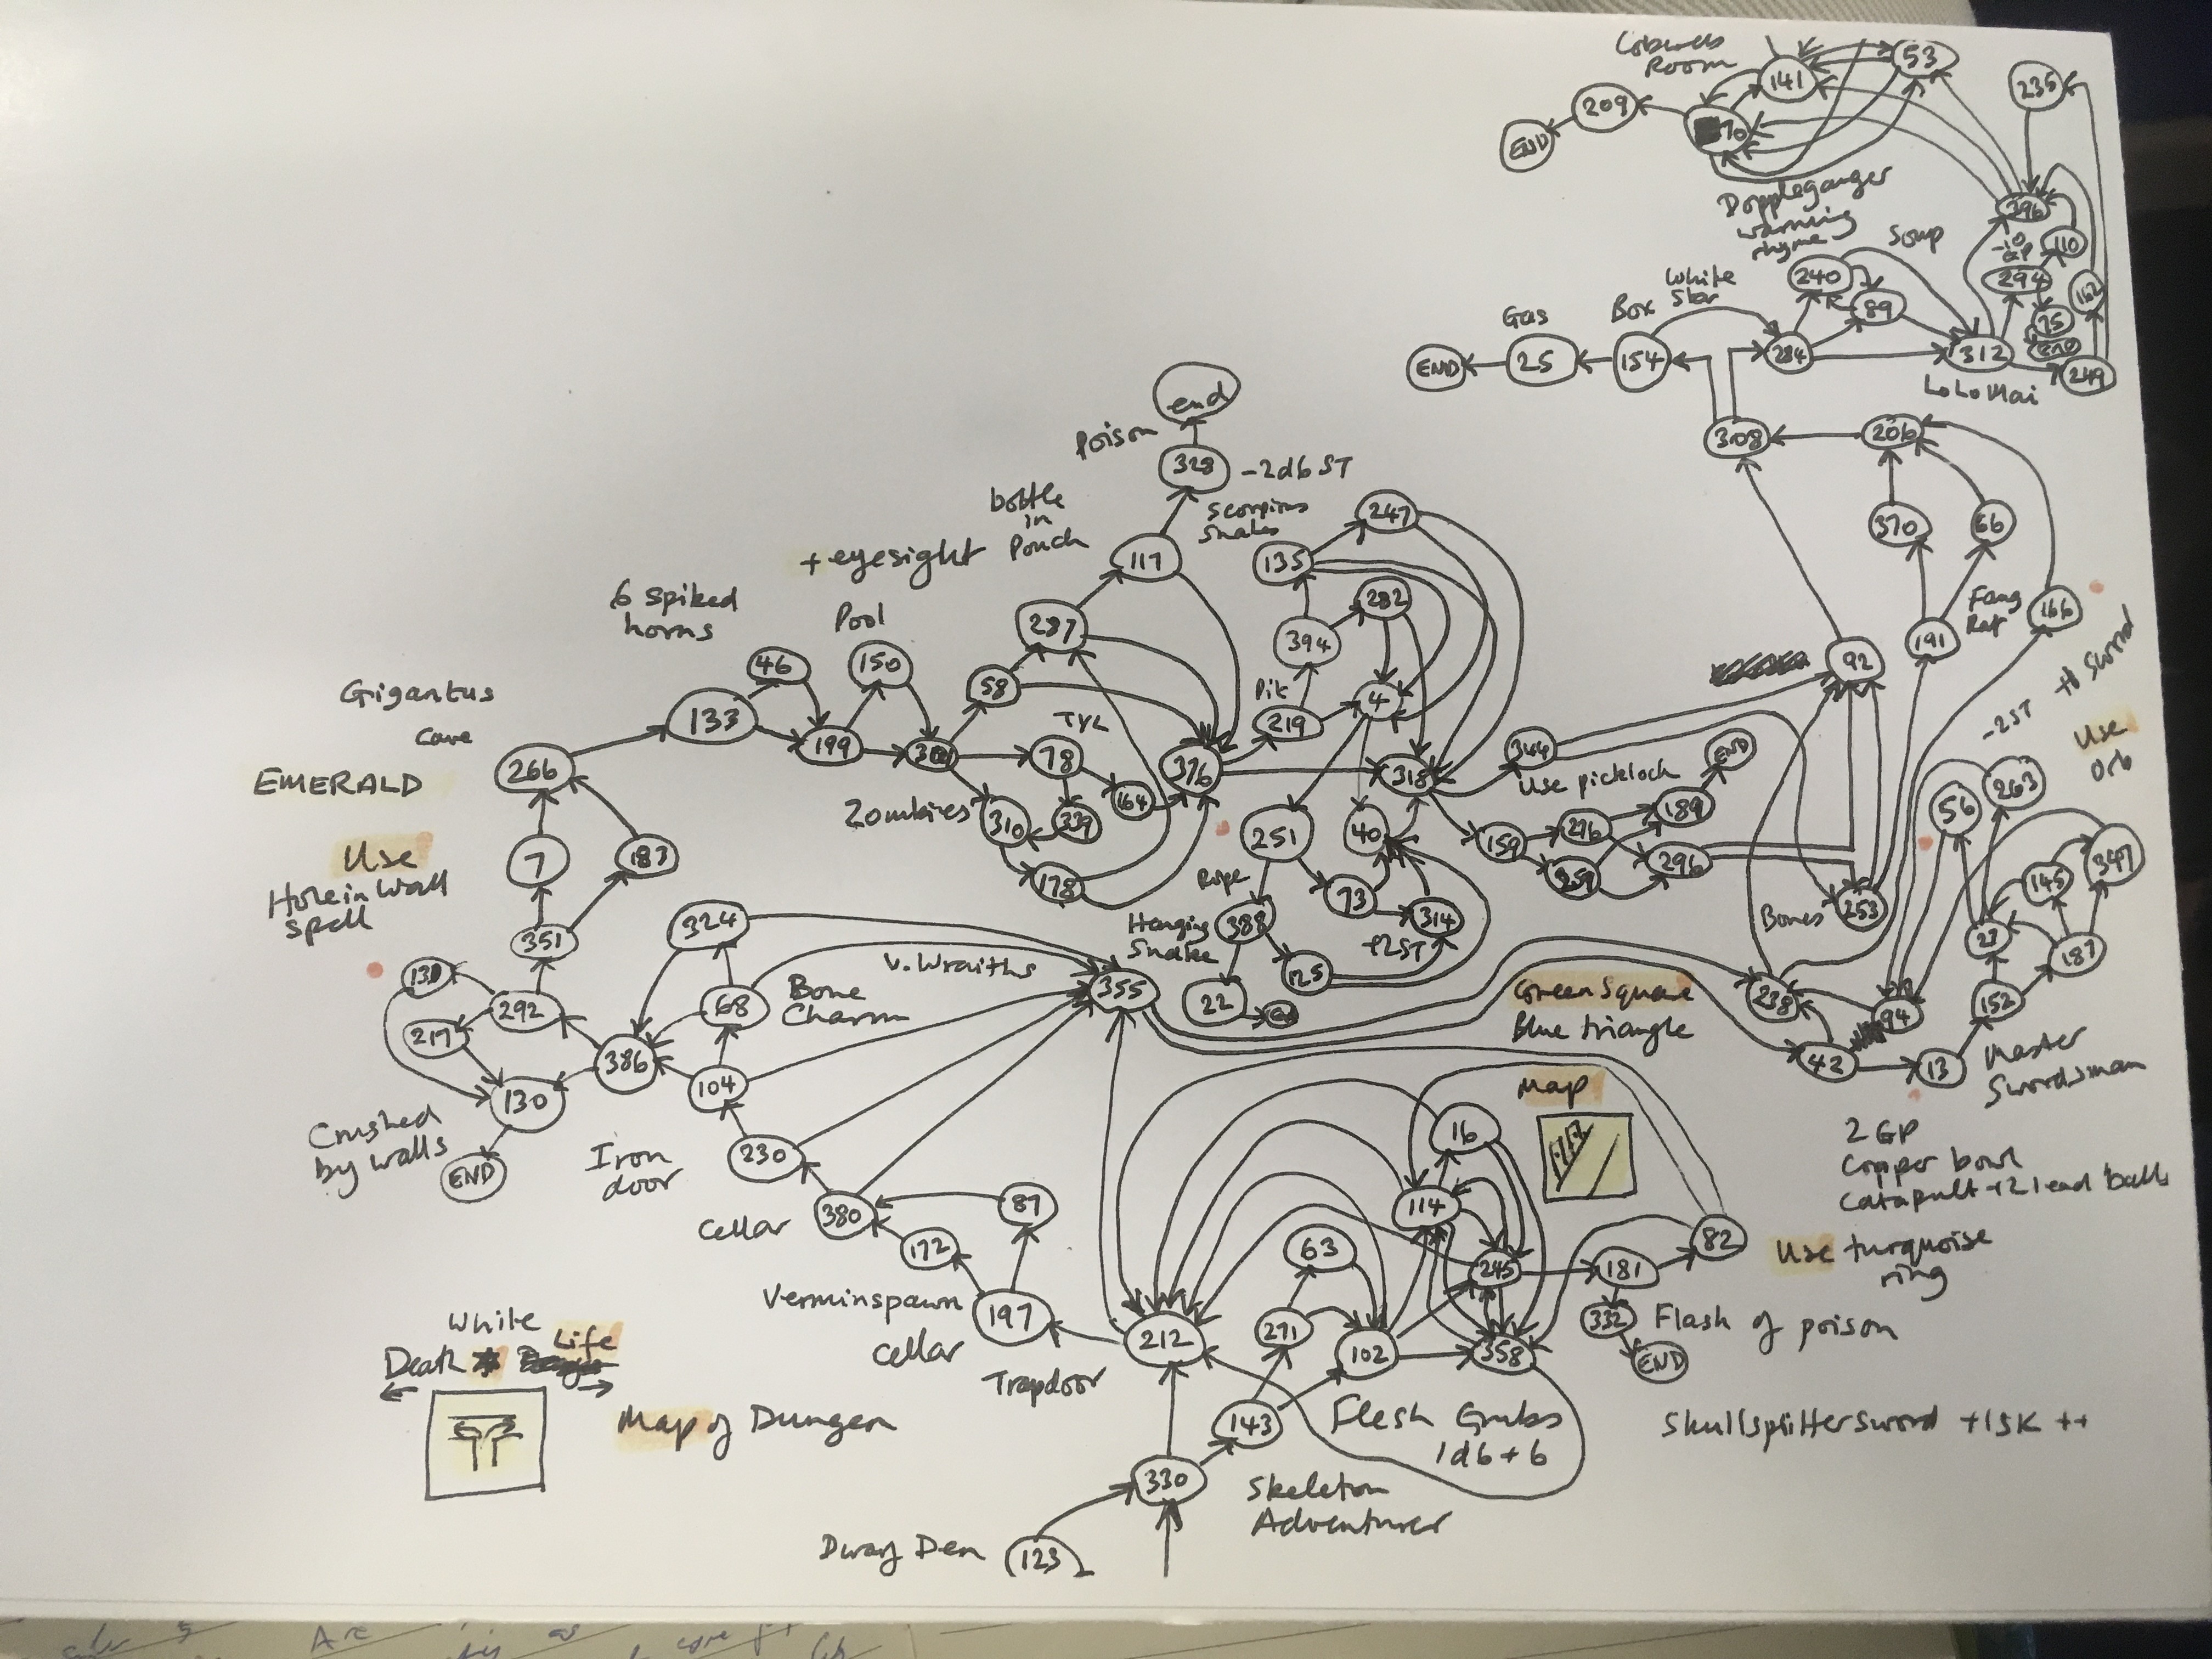 Cobwebs
Room
141
53
235
209
END
Doppleganger
warning
rhyme
396
-10
GP
110
Soup
240
294
162
White
Star
89
75
END
Gas
Box
END
25
154
284
312
249
LoLo Mai
end
308
206
Poison
328
-2d6 ST
bottle
in
Pouch
scorpions
snakes
247
370
66
+eyesight
117
135
6 spiked
horns
Pool
287
282
Fang
Rat
166
394
191
+1 sword
46
150
58
Pit
4
92
Gigantus
cave
133
199
TYL
78
219
-2ST
Use
orb
266
376
318
344
Use picklock
END
EMERALD
164
263
Zombies
310
339
56
7
183
251
40
159
276
189
347
Use
Hole in Wall
spell
259
296
145
178
Rope
73
Bones
253
324
388
314
351
Hanging
Snake
+2ST
27
187
V. Wraiths
125
355
68
Bone
Charm
22
end
Green Square
Blue triangle
238
94
152
292
217
386
42
13
Master
Swordsman
104
130
Map
Crushed
by walls
16
2 GP
Copper bowl
Catapult +2 lead balls
END
Iron
door
230
114
87
Cellar
380
63
82
172
245
181
Use turquoise
ring
Verminspawn
cellar
197
271
332
Flash of poison
White
Death
Life
212
102
358
END
Trapdoor
Map of Dungeon
143
Flesh Grubs
1d6+6
Skullsplitter Sword +1SK ++
330
Skeleton
Adventurer
Dwarf Den
123